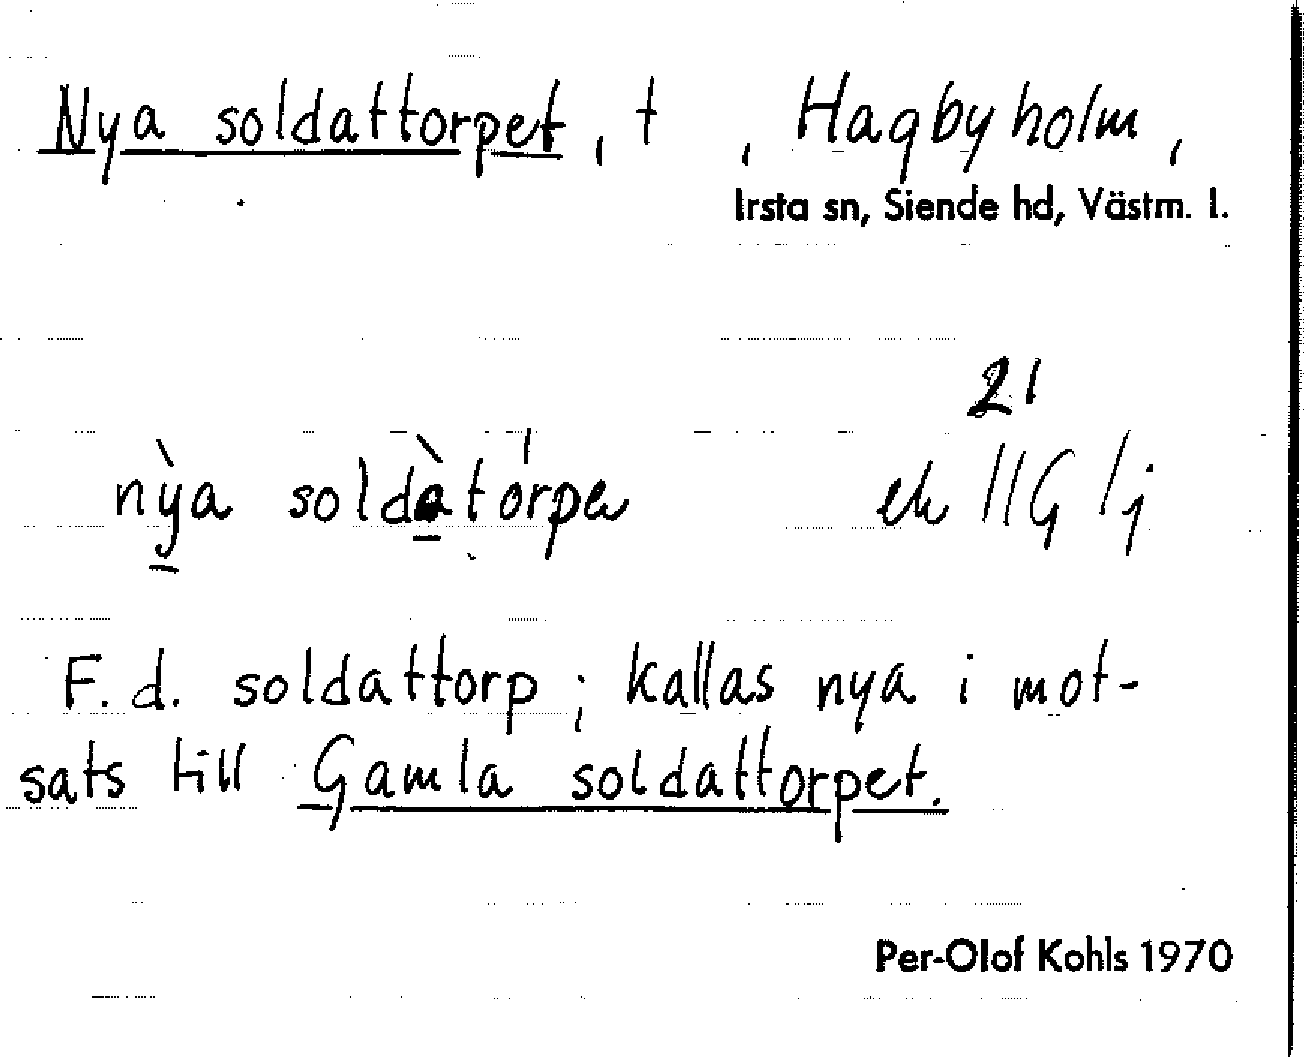 Nya soldattorpet, t , Hagbyholm,
Irsta sn, Siende hd, Västm. l.
21
nỳa soldàtórpe ek 11G 1j
F.d. soldattorp; kallas nya i mot-
sats till Gamla soldattorpet.
Per-Olof Kohls 1970